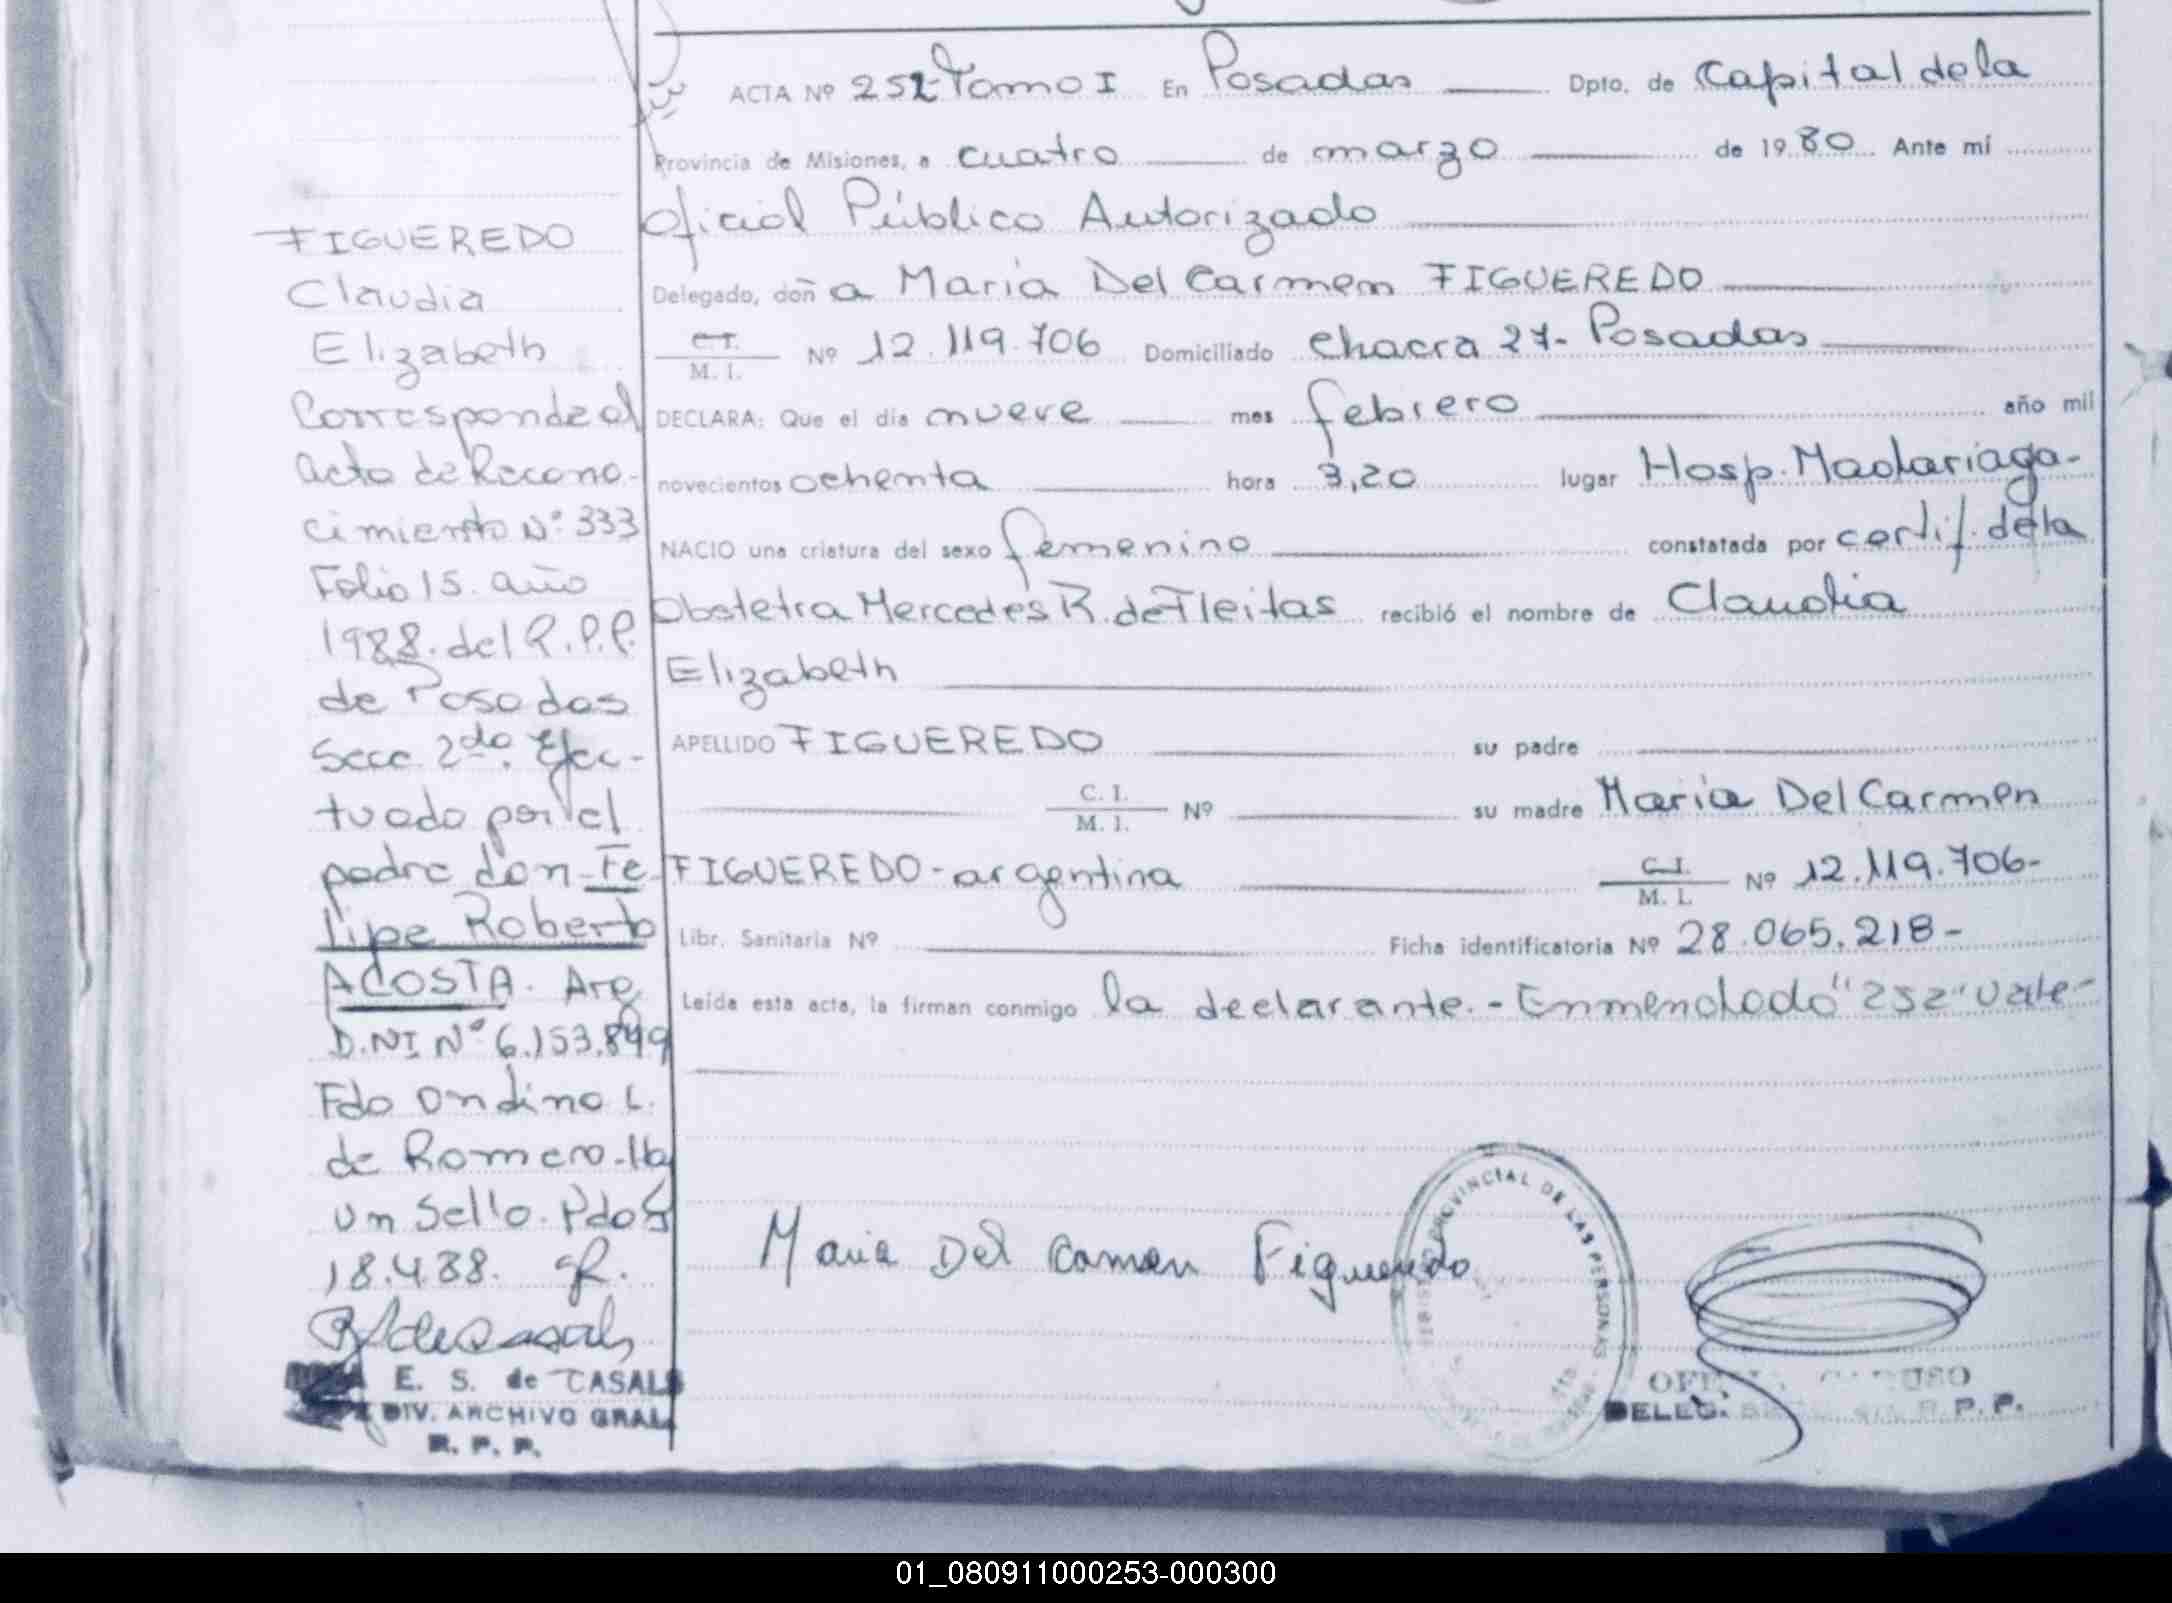 FIGUEREDO
Claudia
Elizabeth
Corresponde al
acta de Recono-
cimiento Nº 333
Folio 15. año
1988. del R.P.P.
de Posadas
Secc 2da. Efec-
tuado por el
padre don Fe-
lipe Roberto
ACOSTA. Arg
D.NI Nº 6.153.849
Fdo Ondina L.
de Romero. Ha
un Sello. Pdas
18.4.88.
E. S. de CASALS
DIV. ARCHIVO GRAL.
R. P. P.
ACTA Nº 252 Tomo I En Posadas Dpto. de Capital de la
Provincia de Misiones, a cuatro de marzo de 1980 Ante mí
Oficial Público Autorizado
Delegado, doña María Del Carmen FIGUEREDO
C.I. / M. I. Nº 12.119.706 Domiciliado Chacra 27- Posadas
DECLARA: Que el día nueve mes febrero año mil
novecientos ochenta hora 3,20 lugar Hosp. Madariaga-
NACIO una criatura del sexo femenino constatada por certif. de la
Obstetra Mercedes R. de Fleitas recibió el nombre de Claudia
Elizabeth
APELLIDO FIGUEREDO su padre
C. I. / M. I. Nº su madre María Del Carmen
FIGUEREDO- argentina C.I. / M. I. Nº 12.119.706-
Libr. Sanitaria Nº Ficha identificatoria Nº 28.065.218-
Leída esta acta, la firman conmigo la declarante.- Enmendado "252" Vale-
Maria Del Carmen Figueredo
PROVINCIAL DE LAS PERSONAS
DELEG. R. P. P.
01_080911000253-000300